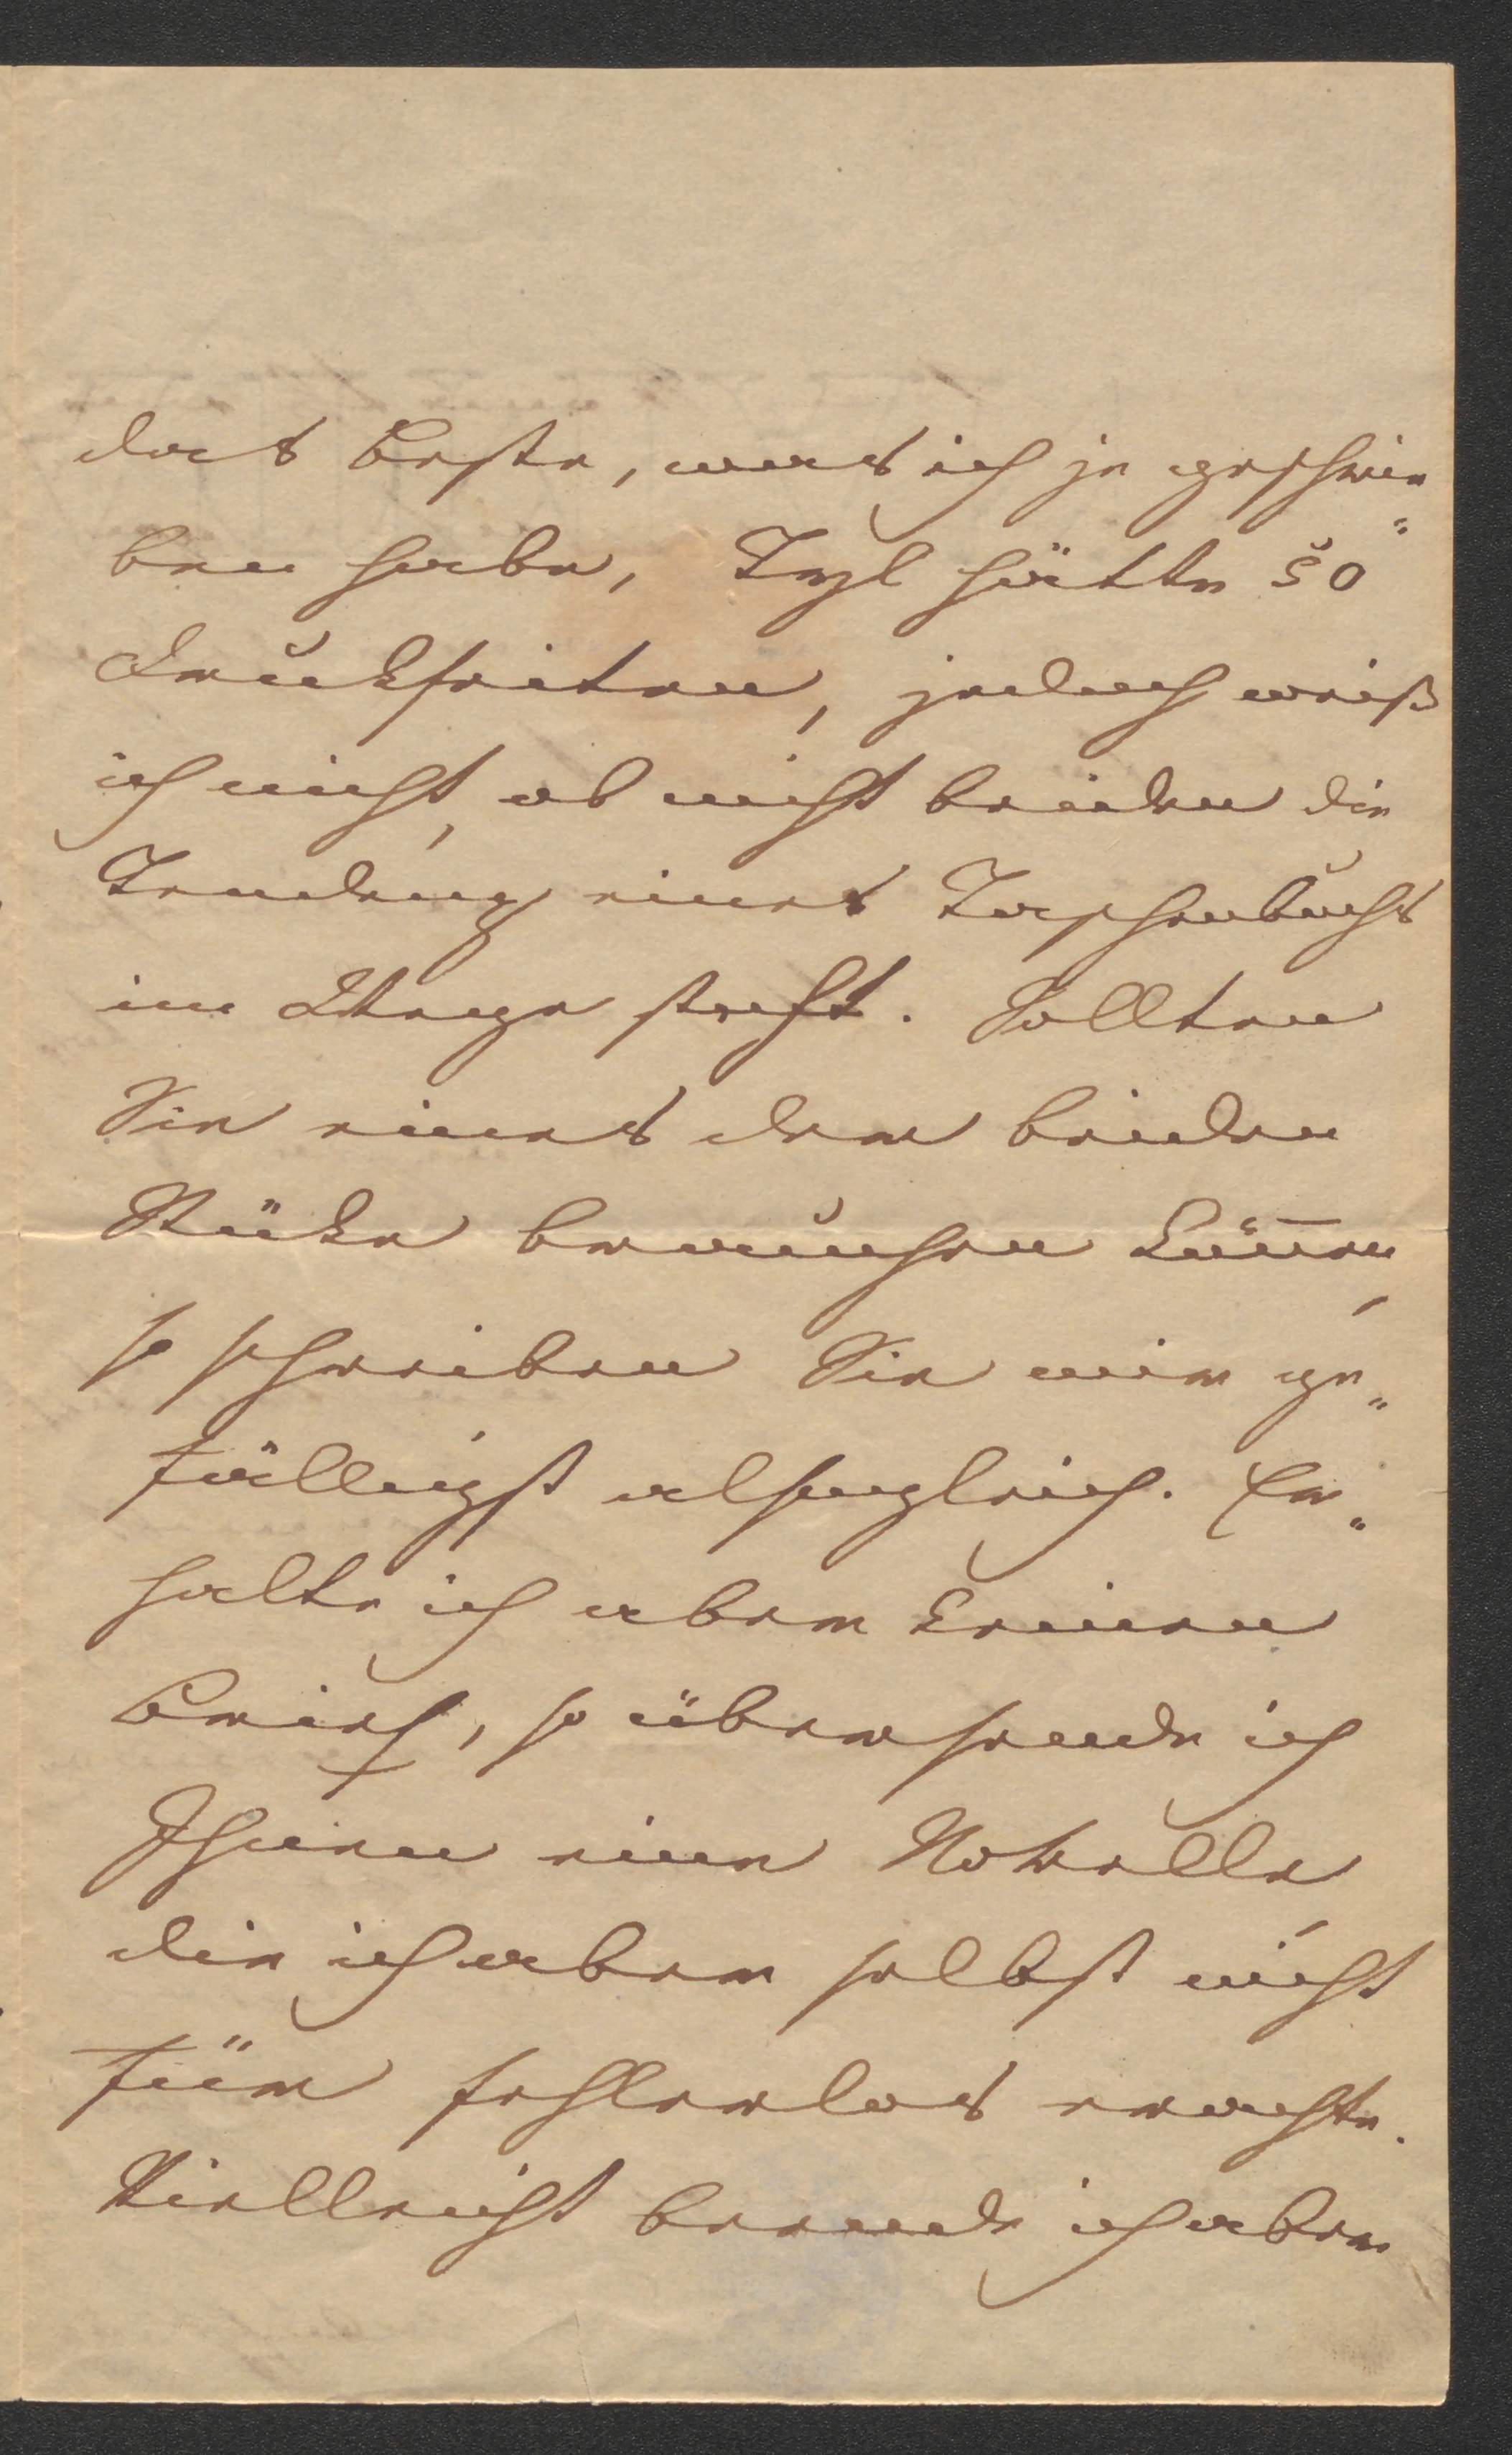 das Beste, was ich je geschrie„
ben habe, Tezl hätte 50
Druckseiten, jedoch weiß
ich nicht, ob nicht beiden die
Tendenz eines Taschenbuchs
im Wege steht. Sollten
Sie eines der beiden
Stücke brauchen kön̅en,
so schreiben Sie mir ge„
fälligst alsogleich. Er„
halte ich aber keinen
Brief, so übersende ich
Ihnen eine Novelle
die ich aber selbst nicht
für fehlerlos erachte.
Vielleicht beende ich aber